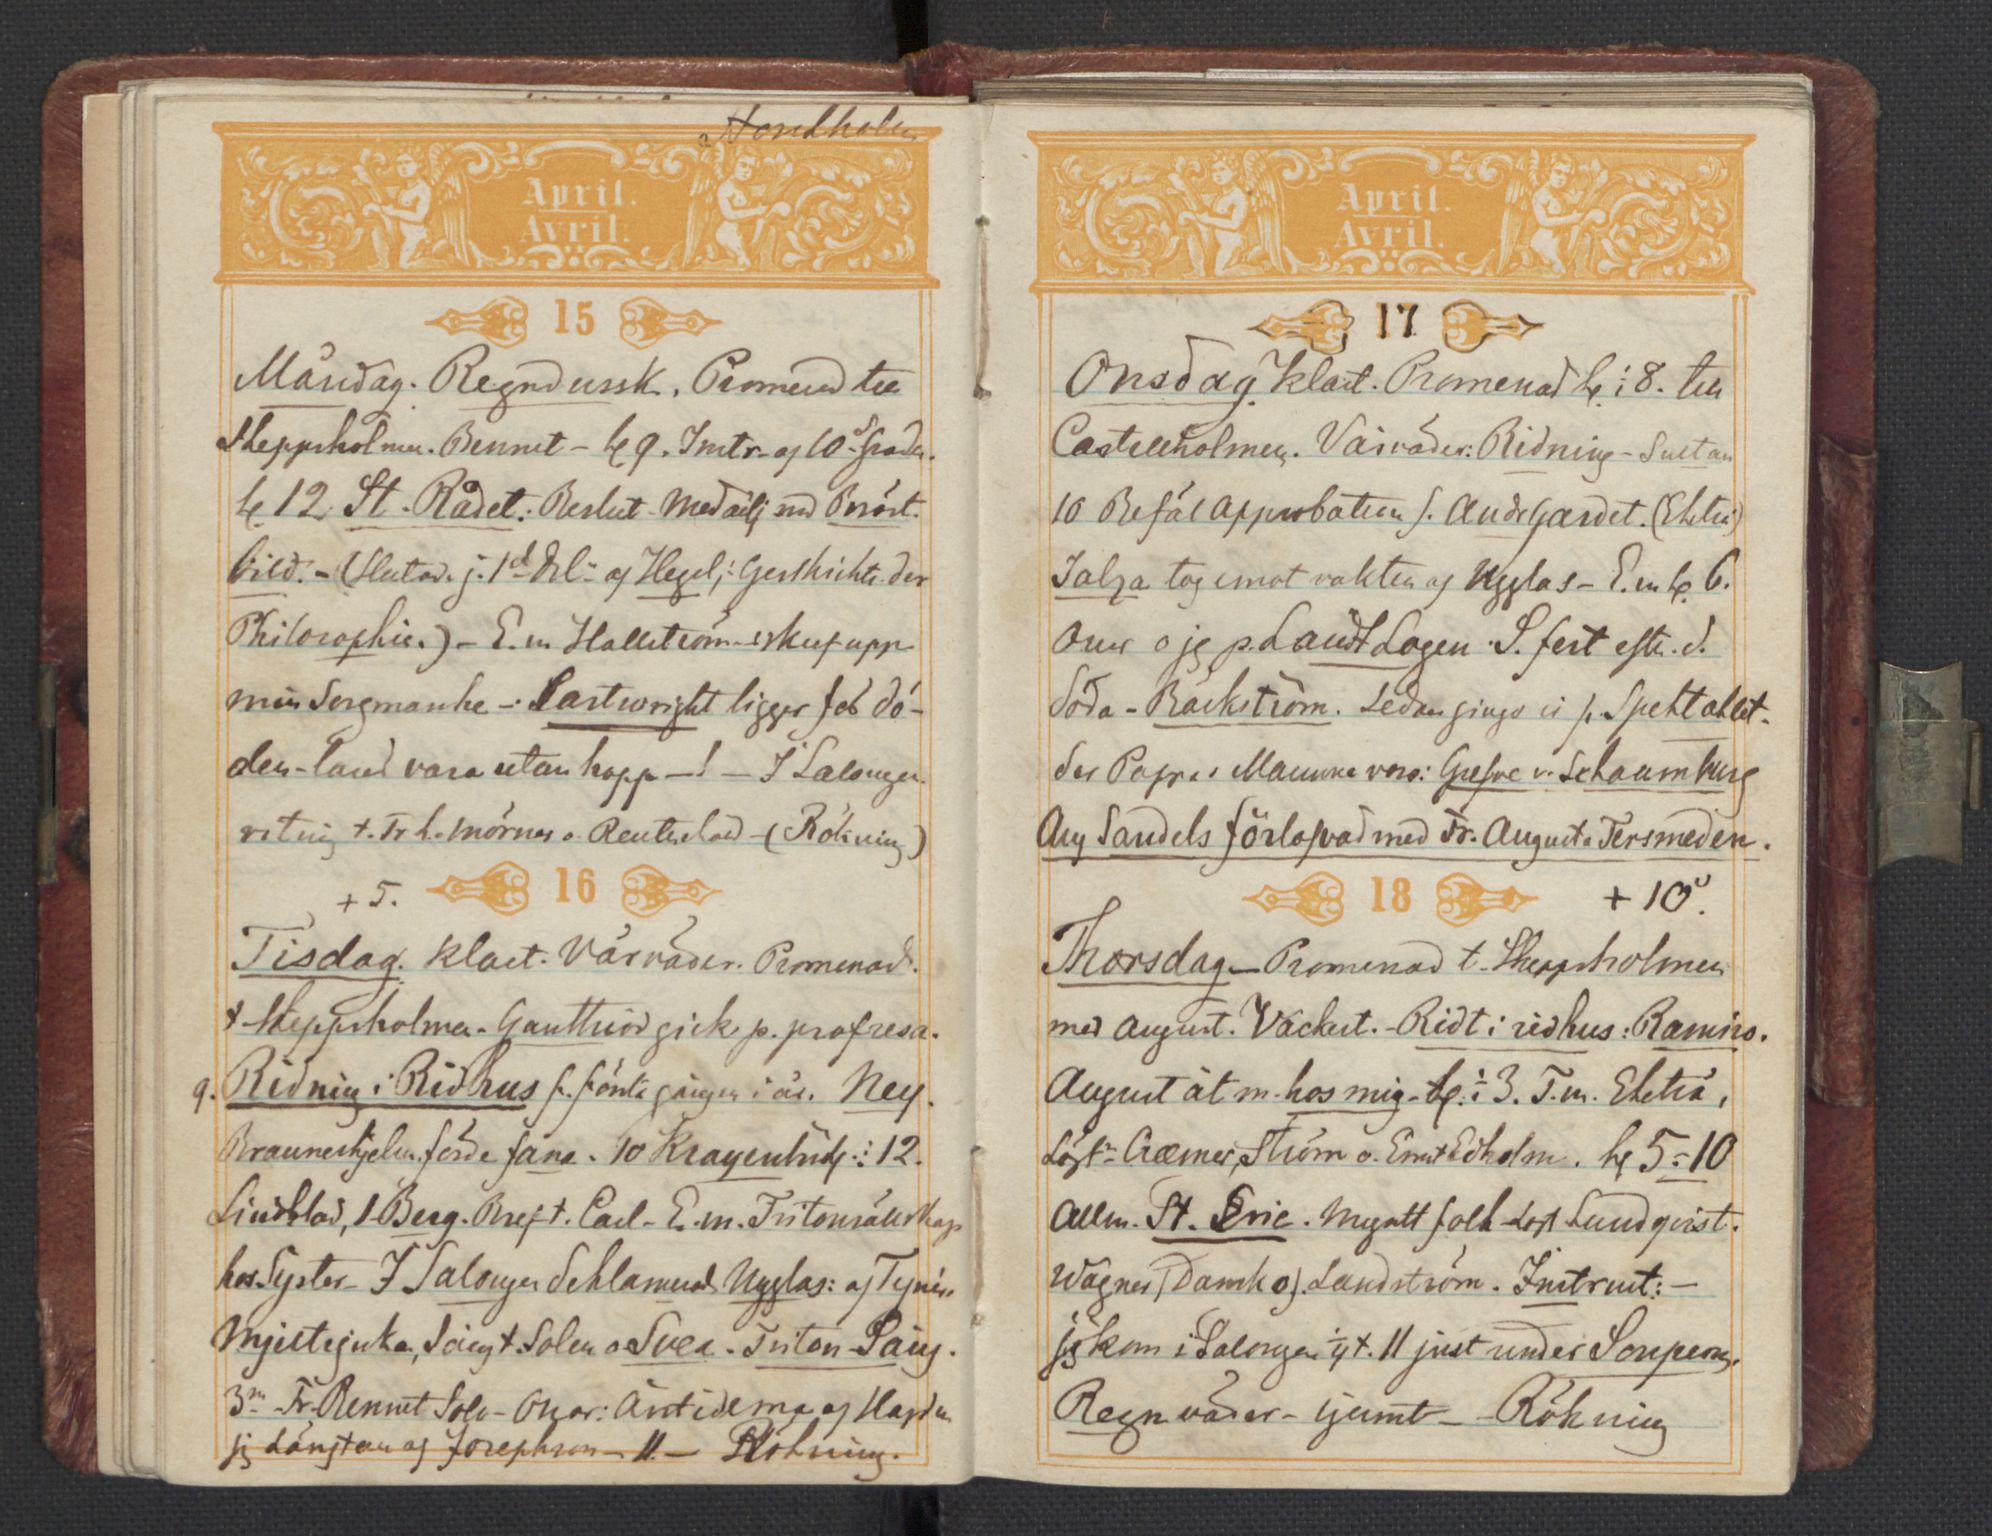 Stockholm
April.
Avril.
15
Måndag. Regndussk. Promenad till
Skeppsholmen. Bennet - kl 9. Instr. af 10de Graden.
kl 12 St. Rådet: Beslut Medailj med Bröst-
bild. - (Slutad. j. 1st Del af Hegel: Geschichte der
Philosophie.) - E. m Hallström
min Sorgmanke - Cartwright ligger för dö-
den - vara utan hopp -! - I Salongen
t. Fr h. Mörner o. Reuterskiöld - (Rökning)
+5. 16
Tisdag. Klart. Vårväder. Promenad.
t Skeppsholmen. Ganthiod gick p. profresa.
9. Ridning i Ridhus f. första gången i år. Ney.
Brauneshjelm förde fana. 10 Kragenlund : 12.
Lindblad, Berg. Bref t. Carl - E. m. Tritonsällskap
hos Syster - I Salongen deklamerad Ugglas: af Tegnér.
Mjeltsjuka, Sång t Solen o Svea. Triton Sång.
3m Fr. Bennet Solo - Onar: Antidema af Haydn
jg Längtan af Josephson - 11 - Rökning.
April.
Avril.
17
Onsdag. Klart. Promenad kl ½ 8. till
Castellholmen. Vårväder: Ridning - Sultan
10 Befäl approbation f. Andr Gardet. (Ehrs)
Jalza tog emot vakten af Ugglas - E. m kl 6.
Onar o jg p. Landt Logen. S. fest efter d.
döda - Bäckström. Sedan gingo vi p. Spektaklet.
der Pappa o Mamma voro: Grefve v. Schaumburg
Aug Sandels förlofvad med Fr. Augusta Tersmeden.
18 + 10°.
Thorsdag - Promenad t. Skeppsholmen
med August. Vackert. - Ridt i ridhus: Ramiro.
August åt m. hos mig - kl. ½ 3. F. m.
Löjtn Cræmer, Ström o. Ernst Edholm. kl 5-10
Allm. St. Eric. Mycktt folk Löjt Lundqvist.
Wagner (Dansk o). Landström. Instruct: -
jg kom i Salongen ½ t. 11 just under Soupern,
Regnväder - jemt - Rökning